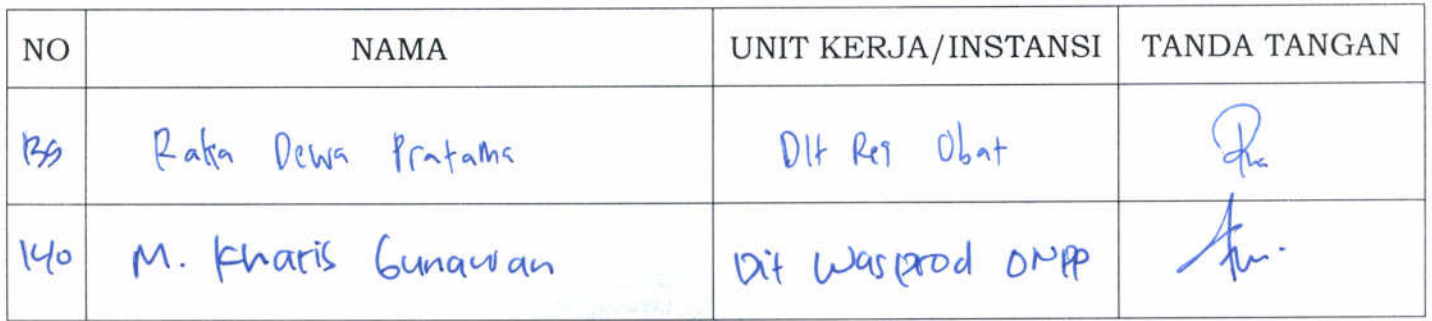 NO NAMA UNIT KERJA/INSTANSI TANDA TANGAN
139 Raka Dewa Pratama Dit Reg Obat
140 M. Kharis Gunawan Dit Wasprod ONPP